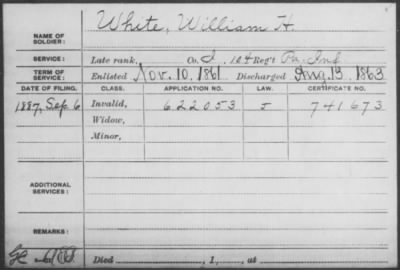 White, William H.
NAME OF SOLDIER:
SERVICE: Late rank, Co. I, 104 Reg't Pa. Inf
TERM OF SERVICE: Enlisted Nov. 10, 1861 Discharged Aug. 13, 1863
DATE OF FILING. CLASS. APPLICATION NO. LAW. CERTIFICATE NO.
1887, Sep 6 Invalid, 622053 J 741673
Widow,
Minor,
ADDITIONAL SERVICES:
REMARKS:
Died , 1 , at